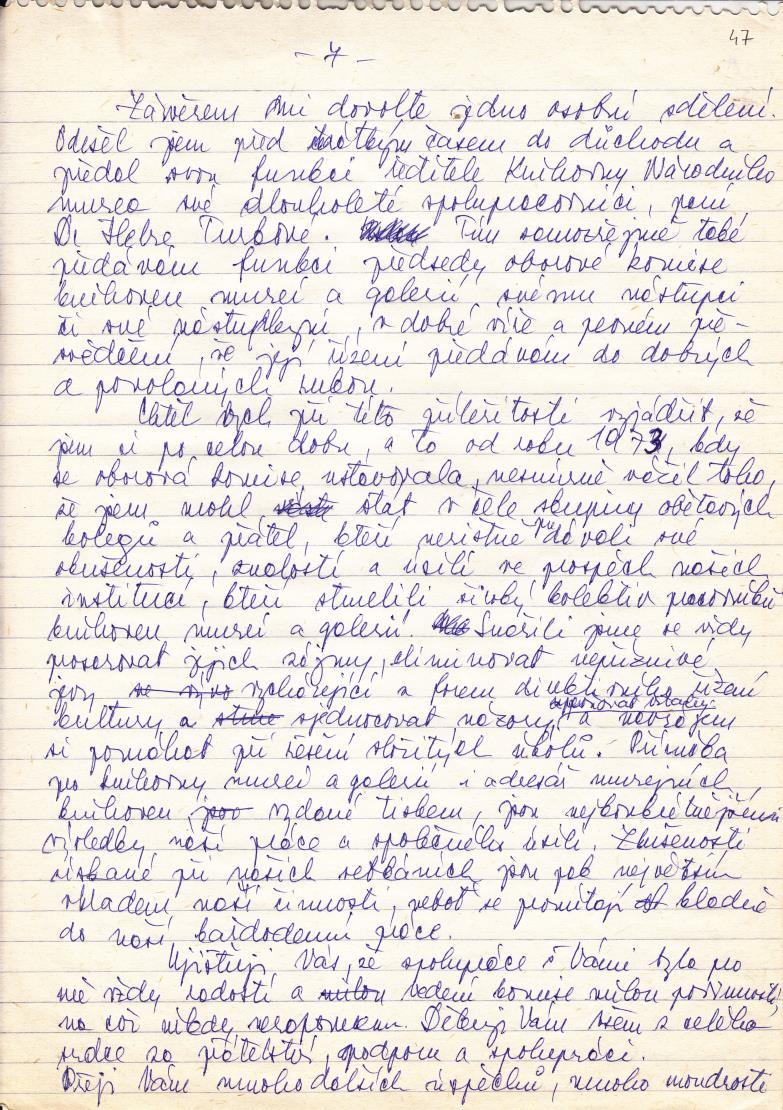 47
- 7 -
Závěrem mi dovolte jedno osobní sdělení.
Odešel jsem před krátkým časem do důchodu a
předal svou funkci ředitele Knihovny Národního
muzea své dlouholeté spolupracovnici, paní
Dr Helze Turkové. Tím samozřejmě také
předávám funkci předsedy oborové komise
knihoven muzeí a galerií svému nástupci
či své nástupkyni, v dobré víře a pevném pře-
svědčení, že její řízení předávám do dobrých
a povolaných rukou.
Chtěl bych při této příležitosti vyjádřit, že
jsem si po celou dobu, a to od roku 1973, kdy
se oborová komise ustavovala, nesmírně vážil toho,
že jsem mohl stát v čele skupiny obětavých
kolegů a přátel, kteří nezištně dávali své
zkušenosti, znalosti a úsilí ve prospěch našich
institucí, kteří stmelili široký kolektiv pracovníků
knihoven muzeí a galerií. Snažili jsme se vždy
prosazovat jejich zájmy, eliminovat nepříznivé
jevy, vycházející z forem direktivního řízení
kultury a sjednocovat názory, a navzájem
si pomáhat při řešení složitých úkolů. Příručka
pro knihovny muzeí a galerií i adresář muzejních
knihoven vydané tiskem, jsou nejkonkrétnějšími
výsledky naší práce a společného úsilí. Zkušenosti
získané při našich setkáních jsou pak největším
vkladem naší činnosti, neboť se promítají kladně
do naší každodenní práce.
Ujišťuji Vás, že spolupráce s Vámi byla pro
mě vždy radostí a vedení komise milou povinností,
na což nikdy nezapomenu. Děkuji Vám všem z celého
srdce za přátelství, podporu a spolupráci.
Přeji Vám mnoho dalších úspěchů, mnoho moudrosti